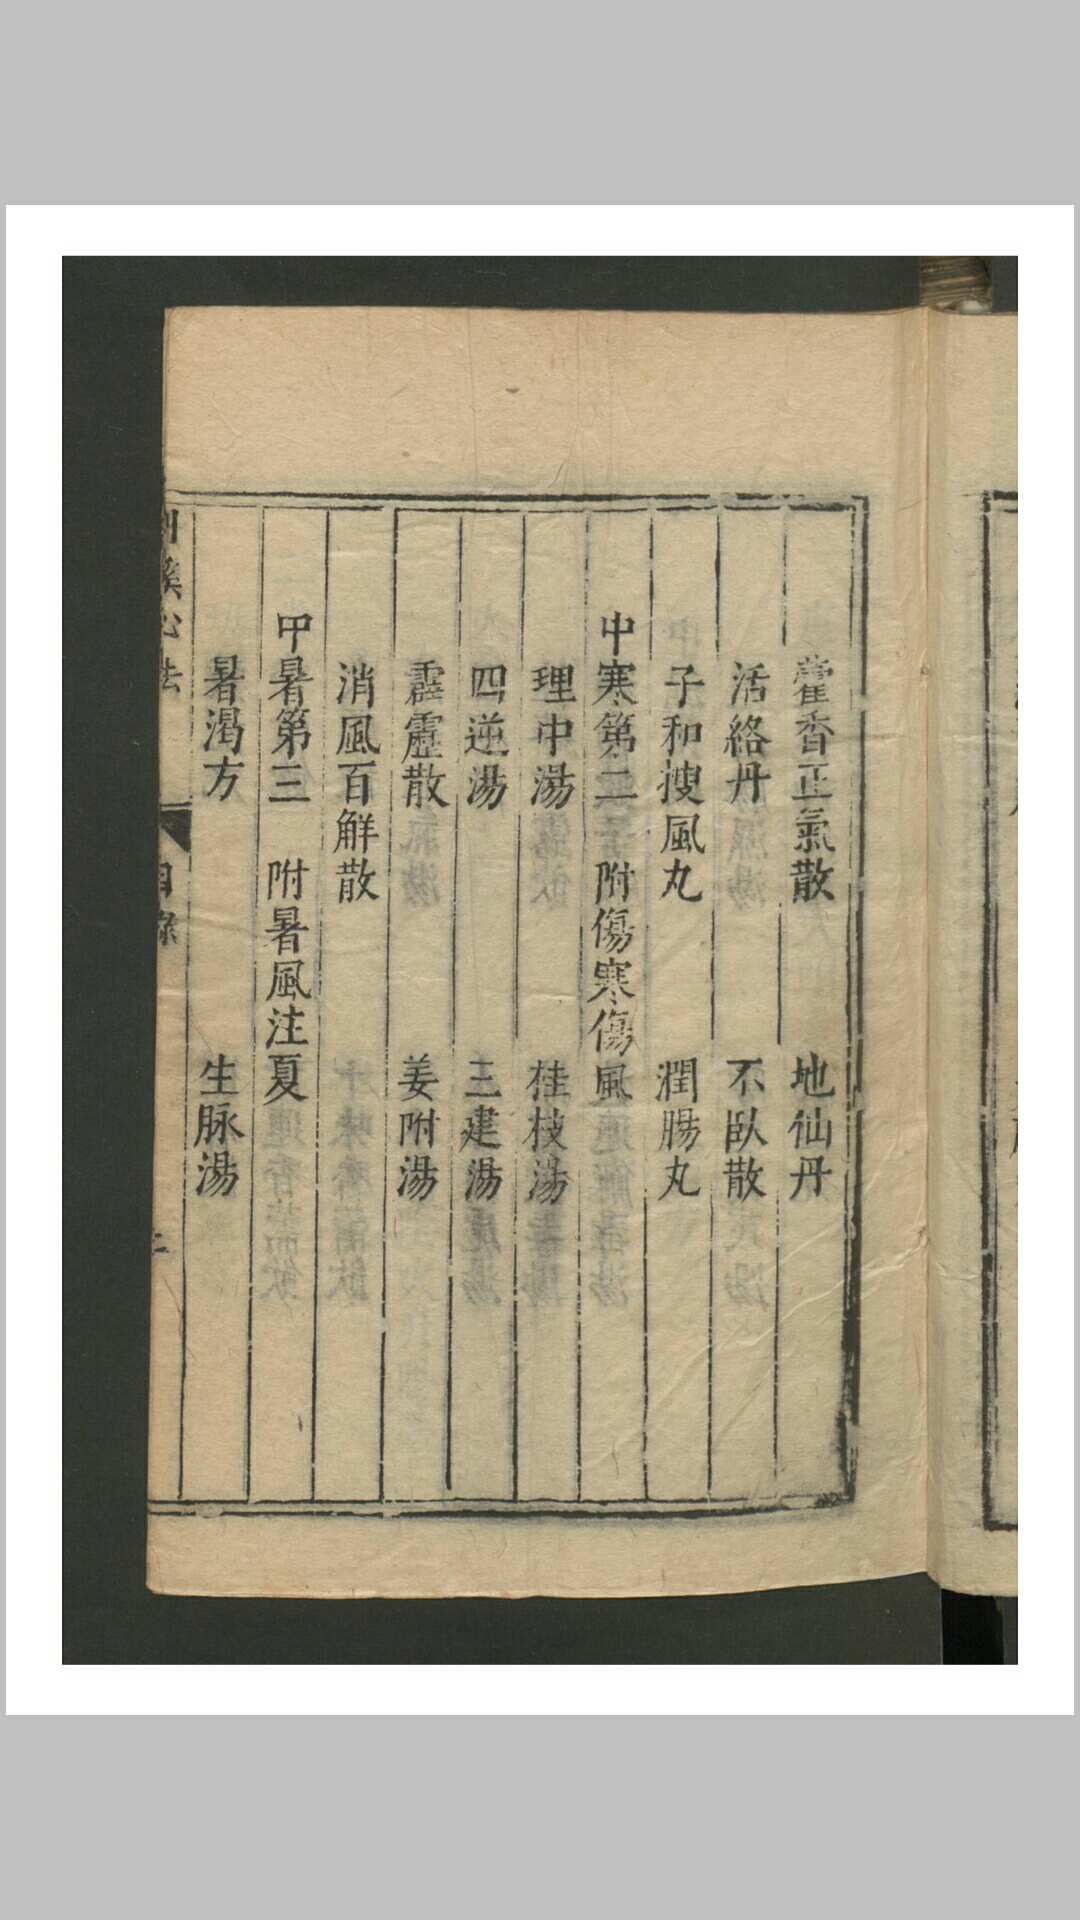 藿香正氣散　地仙丹
活絡丹　不臥散
子和搜風丸　潤腸丸
中寒第二　附傷寒傷風
理中湯　桂枝湯
四逆湯　三建湯
霹靂散　姜附湯
消風百解散
中暑第三　附暑風注夏
暑渴方　生脉湯
目錄